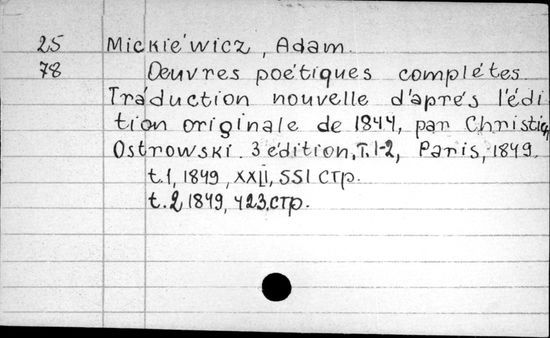 25 Mickie'wicz, Adam.
78 Oeuvres poétiques complétes.
Tráduction nouvelle d'aprés l'édi
tion originale de 1844, par Christian
Ostrowski. 3 édition, T. 1-2, Paris, 1849.
t.1, 1849, XXII, 551 стр.
t.2 1849, 423.стр.